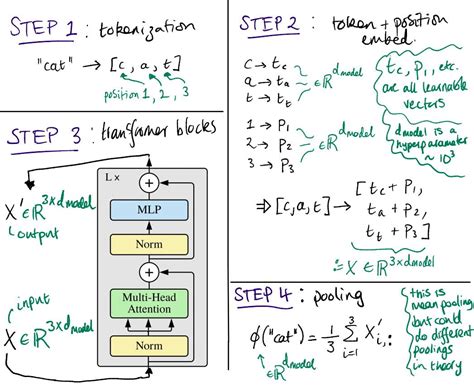 STEP 1 : tokenization
"cat" → [c, a, t]
position 1, 2, 3
STEP 2 : token + position
embed.
c → t_c
a → t_a ∈ ℝ^dmodel
t → t_t
1 → P_1
2 → P_2 ∈ ℝ^dmodel
3 → P_3
t_c, P_1, etc.
are all learnable
vectors
dmodel is a
hyperparameter
~ 10^3
⇒ [c,a,t] → [t_c + P_1,
t_a + P_2,
t_t + P_3]
:= X ∈ ℝ^3×dmodel
STEP 3 : transformer blocks
X' ∈ ℝ^3×dmodel
output
L×
+
MLP
Norm
+
Multi-Head
Attention
Norm
input
X ∈ ℝ^3×dmodel
STEP 4 : pooling
φ("cat") = 1/3 ∑_{i=1}^{3} X'_{i,:}
∈ ℝ^dmodel
this is
mean pooling,
but could
do different
poolings
in theory